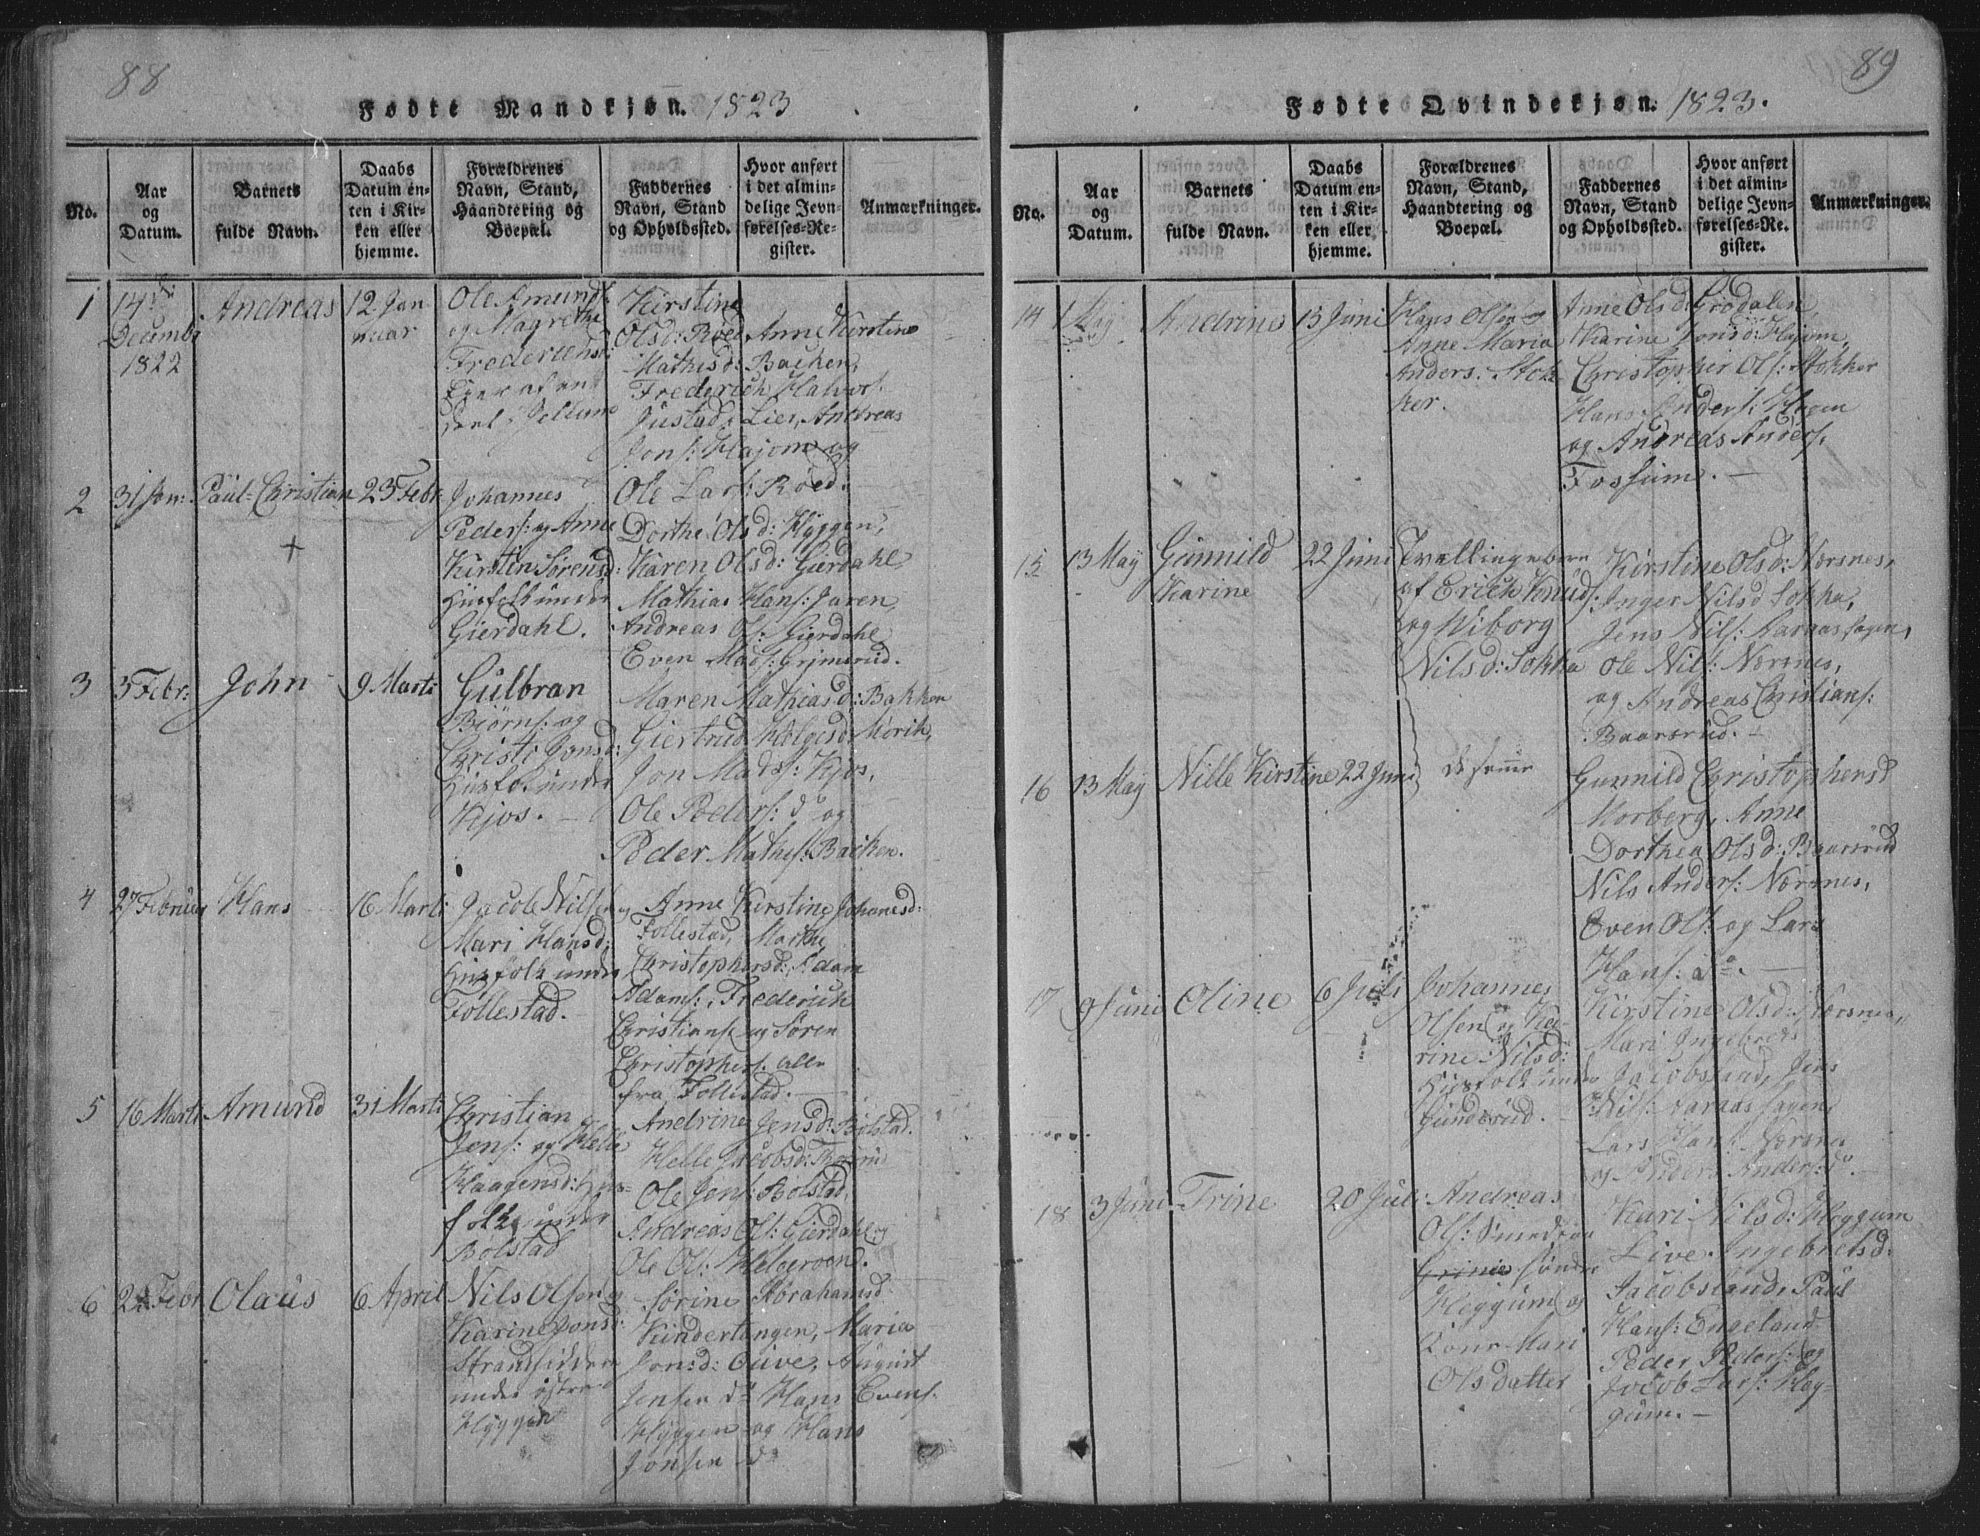 88
Fødte Mandkjøn. 1823
No.
Aar
og
Datum.
Barnets
fulde Navn.
Daabs
Datum en-
ten i Kir-
ken eller
hjemme.
Forældrenes
Navn, Stand,
Haandtering og
Boepæl.
Faddernes
Navn, Stand
og Opholdssted.
Hvor anført
i det almin-
delige Jevn-
førelses-Re-
gister.
Anmærkninger.
1
14
Decembr
1822
Andreas
12 Jan
uar
Ole Amunds:
og Magrethe
Fredericks:
Eier af
deel i Jellum
Kirstine
Olsd: Røed Anne Kirstine
Mathisd: Backen,
Frederich Halvors:
Justad: Lier, Andreas
Jons: Højom og
Ole Lars: Røed.
2
31 Jan:
Paul Christian
+
23 Febr:
Johannes
Peders: og Anne
Kirstin Sørensd:
Huusfolk under
Gierdahl.
Dorthe Olsd: Hyggen,
Karen Olsd: Gierdahl
Mathias Hans: Jaren,
Andreas Ols: Gierdahl
Even Mads: Grimsrud.
3
3 Febr:
John
9 Marti
Gulbran
Biørns: og
Christi Jonsd:
Huusfolk under
Kjos.
Maren Mathiasd: Bakken
Giertrud Helgesd: Mørik,
Jon Mads: Kjos,
Ole Peders: do og
Peder Mathis: Backen.
4
27 Februar
Hans
16 Marti
Jacob Nilsen og
Mari Hansd:
Huusfolk under
Follestad.
Anne Kirstine Johanesd:
Follestad, Marthe
Christophersd: Adam
Adams:, Frederich
Christians: og Søren
Christophers: alle
fra Follestad.
5
16 Marti
Amund
31 Marti
Christian
Jens: og Helle
Haagensd: Huus-
folk under
Bolstad
Andrine Jensd: Bolstad.
Helle Jacobsd:
Ole Jens: Bolstad,
Andreas Ols: Gierdahl og
Ole Ols: Helgeroend.
6
24 Febr
Olaus
6 April
Nils Olsen og
Karine Jonsd:
Strandsiddere
under østre
Hyggen
Sørine Abrahamsd:
Kindertangen, Maria
Jonsd: Ouive, August
Jensen do Hans Evens:
Hyggen og Hans
Jonsen do
89
Fødte Qvindekjøn. 1823.
No.
Aar
og
Datum.
Barnets
fulde Navn.
Daabs
Datum en-
ten i Kir-
ken eller
hjemme.
Forældrenes
Navn, Stand,
Haandtering og
Boepæl.
Faddernes
Navn, Stand
og Opholdssted.
Hvor anført
i det almin-
delige Jevn-
førelses-Re-
gister.
Anmærkninger.
14
1 May
Andrine
13 Juni
Hans Olsen og
Anne Maria
Anders: Stok
ker.
Anne Olsd: Grødalen,
Karine Jonsd: Højom,
Christopher Ols: Stokker
Hans Anders: Hogen
og Andreas Anders:
Fossum.
15
13 May
Gunnild
Karine
22 Juni
Tvillingebørn
af Erich Knuds:
og Wiborg
Nilsd: Sokka
Kirstine Olsd: Nærsnes,
Inger Nilsd Sokka,
Jens Nils: Karaashagen,
Ole Nils: Nærsnes,
og Andreas Christians:
Baarsrud.
16
13 May
Nille Kirstine
22 Juni
de samme
Gunnild Christophersd
Morberg, Anne
Dorthea Olsd: Baarsrud
Nils Anders: Nærsnes,
Even Ols: og Lars
Hans: do.
17
9 Juni
Oline
6 Juli
Johannes
Olsen og Ka-
rine Nilsd:
Huusfolk under
Gunderud.
Kirstine Olsd: Nærsnes,
Mari Ingebretsd
Jacobsland, Jens
Nils: Karaashagen,
Lars Hans: Nærsnes
og Anders Anders: do.
18
3 Juni
Trine
20 Juli
Andreas
Ols: Smed
Grinie søndre
Heggum og
Kone Mari
Olsdatter
Kari Nilsd: Heggum
Live Ingebretsd:
Jacobsland, Paul
Hans: Engeland
Peder Peders: og
Jacob Lars: Heg-
gum.